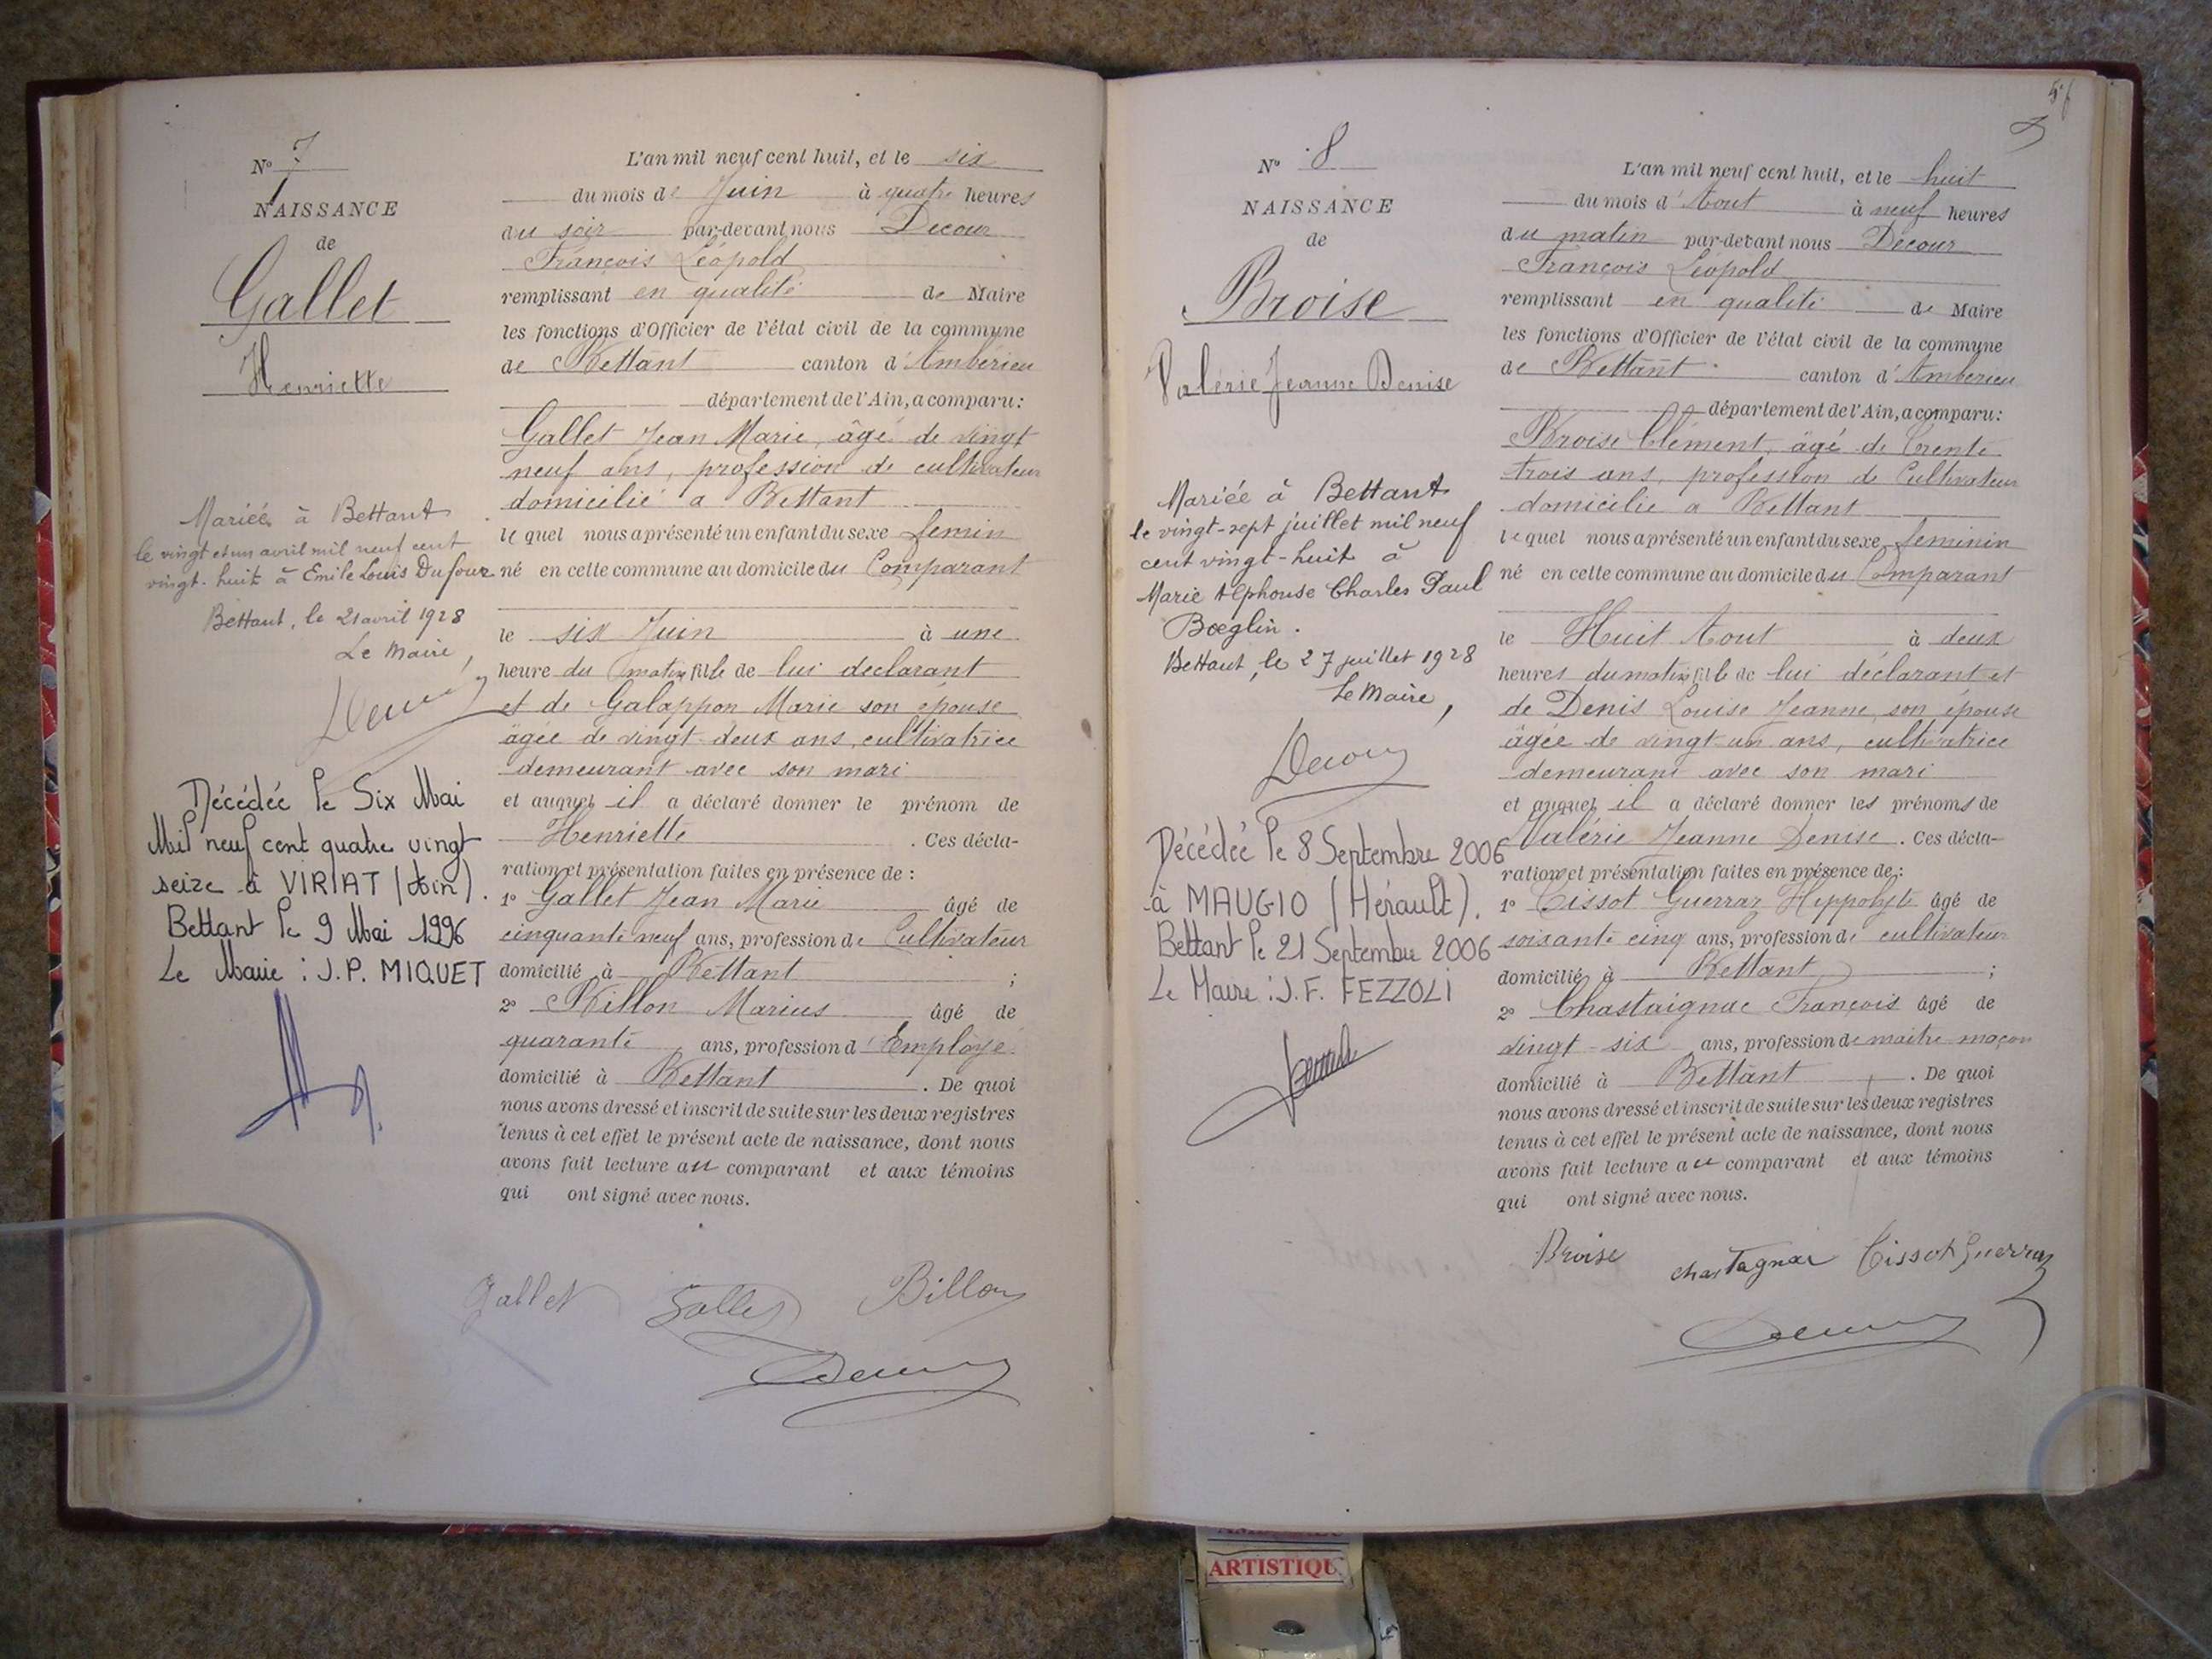 N° 7
NAISSANCE
de
Gallet
Henriette
Mariée à Bettant
le vingt et un avril mil neuf cent
vingt-huit à Emile Louis Dufour
Bettant, le 21 avril 1928
Le Maire,
Décédée le Six Mai
Mil neuf cent quatre vingt
seize à VIRIAT (Ain).
Bettant le 9 Mai 1996
Le Maire : J.P. MIQUET
L'an mil neuf cent huit, et le six
du mois de Juin à quatre heures
du soir par-devant nous Decour
François Léopold
remplissant en qualité de Maire
les fonctions d'Officier de l'état civil de la commune
de Bettant canton d'Ambérieu
département de l'Ain, a comparu :
Gallet Jean Marie, âgé de vingt
neuf ans, profession de cultivateur
domicilié a Bettant
lequel nous a présenté un enfant du sexe femin
né en cette commune au domicile du Comparant
le six Juin à une
heure du matin fille de lui declarant
et de Galappon Marie son épouse
âgée de vingt-deux ans, cultivatrice
demeurant avec son mari
et auquel il a déclaré donner le prénom de
Henriette . Ces décla-
ration et présentation faites en présence de :
1° Gallet Jean Marie âgé de
cinquante neuf ans, profession de Cultivateur
domicilié à Bettant ;
2° Billon Marius âgé de
quarante ans, profession d'Employé
domicilié à Bettant . De quoi
nous avons dressé et inscrit de suite sur les deux registres
tenus à cet effet le présent acte de naissance, dont nous
avons fait lecture au comparant et aux témoins
qui ont signé avec nous.
Gallet Gallet Billon
Decour
56
N° 8
NAISSANCE
de
Broise
Valérie Jeanne Denise
Mariée à Bettant
le vingt-sept juillet mil neuf
cent vingt-huit à
Marie Alphonse Charles Paul
Bœglin.
Bettant, le 27 juillet 1928
Le Maire,
Decour
Décédée le 8 Septembre 2006
à MAUGIO (Hérault).
Bettant le 21 Septembre 2006
Le Maire : J.F. FEZZOLI
L'an mil neuf cent huit, et le huit
du mois d'Aout à neuf heures
du matin par-devant nous Décour
François Léopold
remplissant en qualité de Maire
les fonctions d'Officier de l'état civil de la commune
de Bettant canton d'Ambérieu
département de l'Ain, a comparu :
Broise Clément, âgé de trente
trois ans, profession de Cultivateur
domicilié a Bettant
lequel nous a présenté un enfant du sexe féminin
né en cette commune au domicile du Comparant
le Huit Aout à deux
heures du matin fille de lui déclarant et
de Denis Louise Jeanne, son épouse
âgée de vingt-un ans, cultivatrice
demeurant avec son mari
et auquel il a déclaré donner les prénoms de
Valérie Jeanne Denise . Ces décla-
ration et présentation faites en présence de :
1° Tissot Guerraz Hippolyte âgé de
soixante cinq ans, profession de cultivateur
domicilié à Bettant ;
2° Chastaignac François âgé de
vingt-six ans, profession de maitre maçon
domicilié à Bettant . De quoi
nous avons dressé et inscrit de suite sur les deux registres
tenus à cet effet le présent acte de naissance, dont nous
avons fait lecture au comparant et aux témoins
qui ont signé avec nous.
Broise chastagnac Tissot Guerraz
Decour
ARTISTIQU